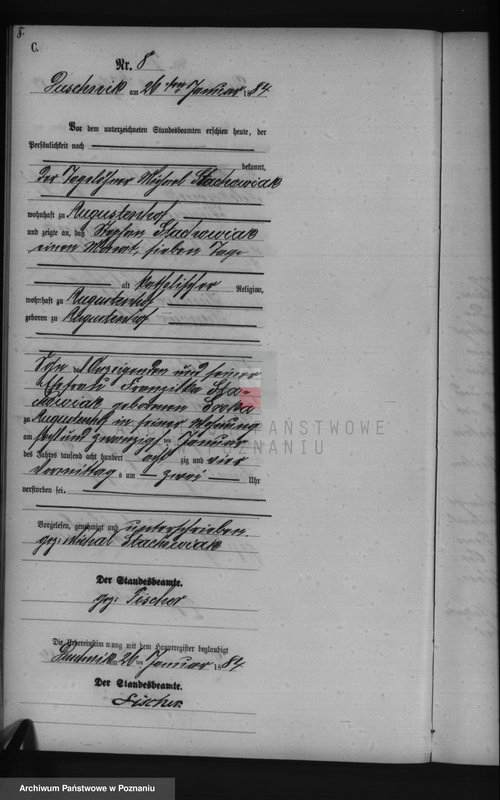 8.
C.
Nr. 8
Duschnik am 26 ten Januar 1884.
Vor dem unterzeichneten Standesbeamten erschien heute, der
Persönlichkeit nach
bekannt,
der Tagelöhner Michael Stachowiak
wohnhaft zu Augustenhof
und zeigte an, daß Stephan Stachowiak
einen Monat, sieben Tage
alt katholischer Religion,
wohnhaft zu Augustenhof
geboren zu Augustenhof
Sohn des Anzeigenden und seiner
Ehefrau Franziska Sta-
chowiak geborenen
zu Augustenhof in seiner Wohnung
am sechsundzwanzig ten Januar
des Jahres tausend acht hundert acht zig und vier
Vormittags um zwei Uhr
verstorben sei.
Vorgelesen, genehmigt und unterschrieben.
gez: Michal Stachowiak
Der Standesbeamte.
gez: Fischer
Die Uebereinstimmung mit dem Hauptregister beglaubigt
Duschnik am 26 ten Januar 1884.
Der Standesbeamte.
Fischer
ARCHIWUM PAŃSTWOWE
W POZNANIU
Archiwum Państwowe w Poznaniu